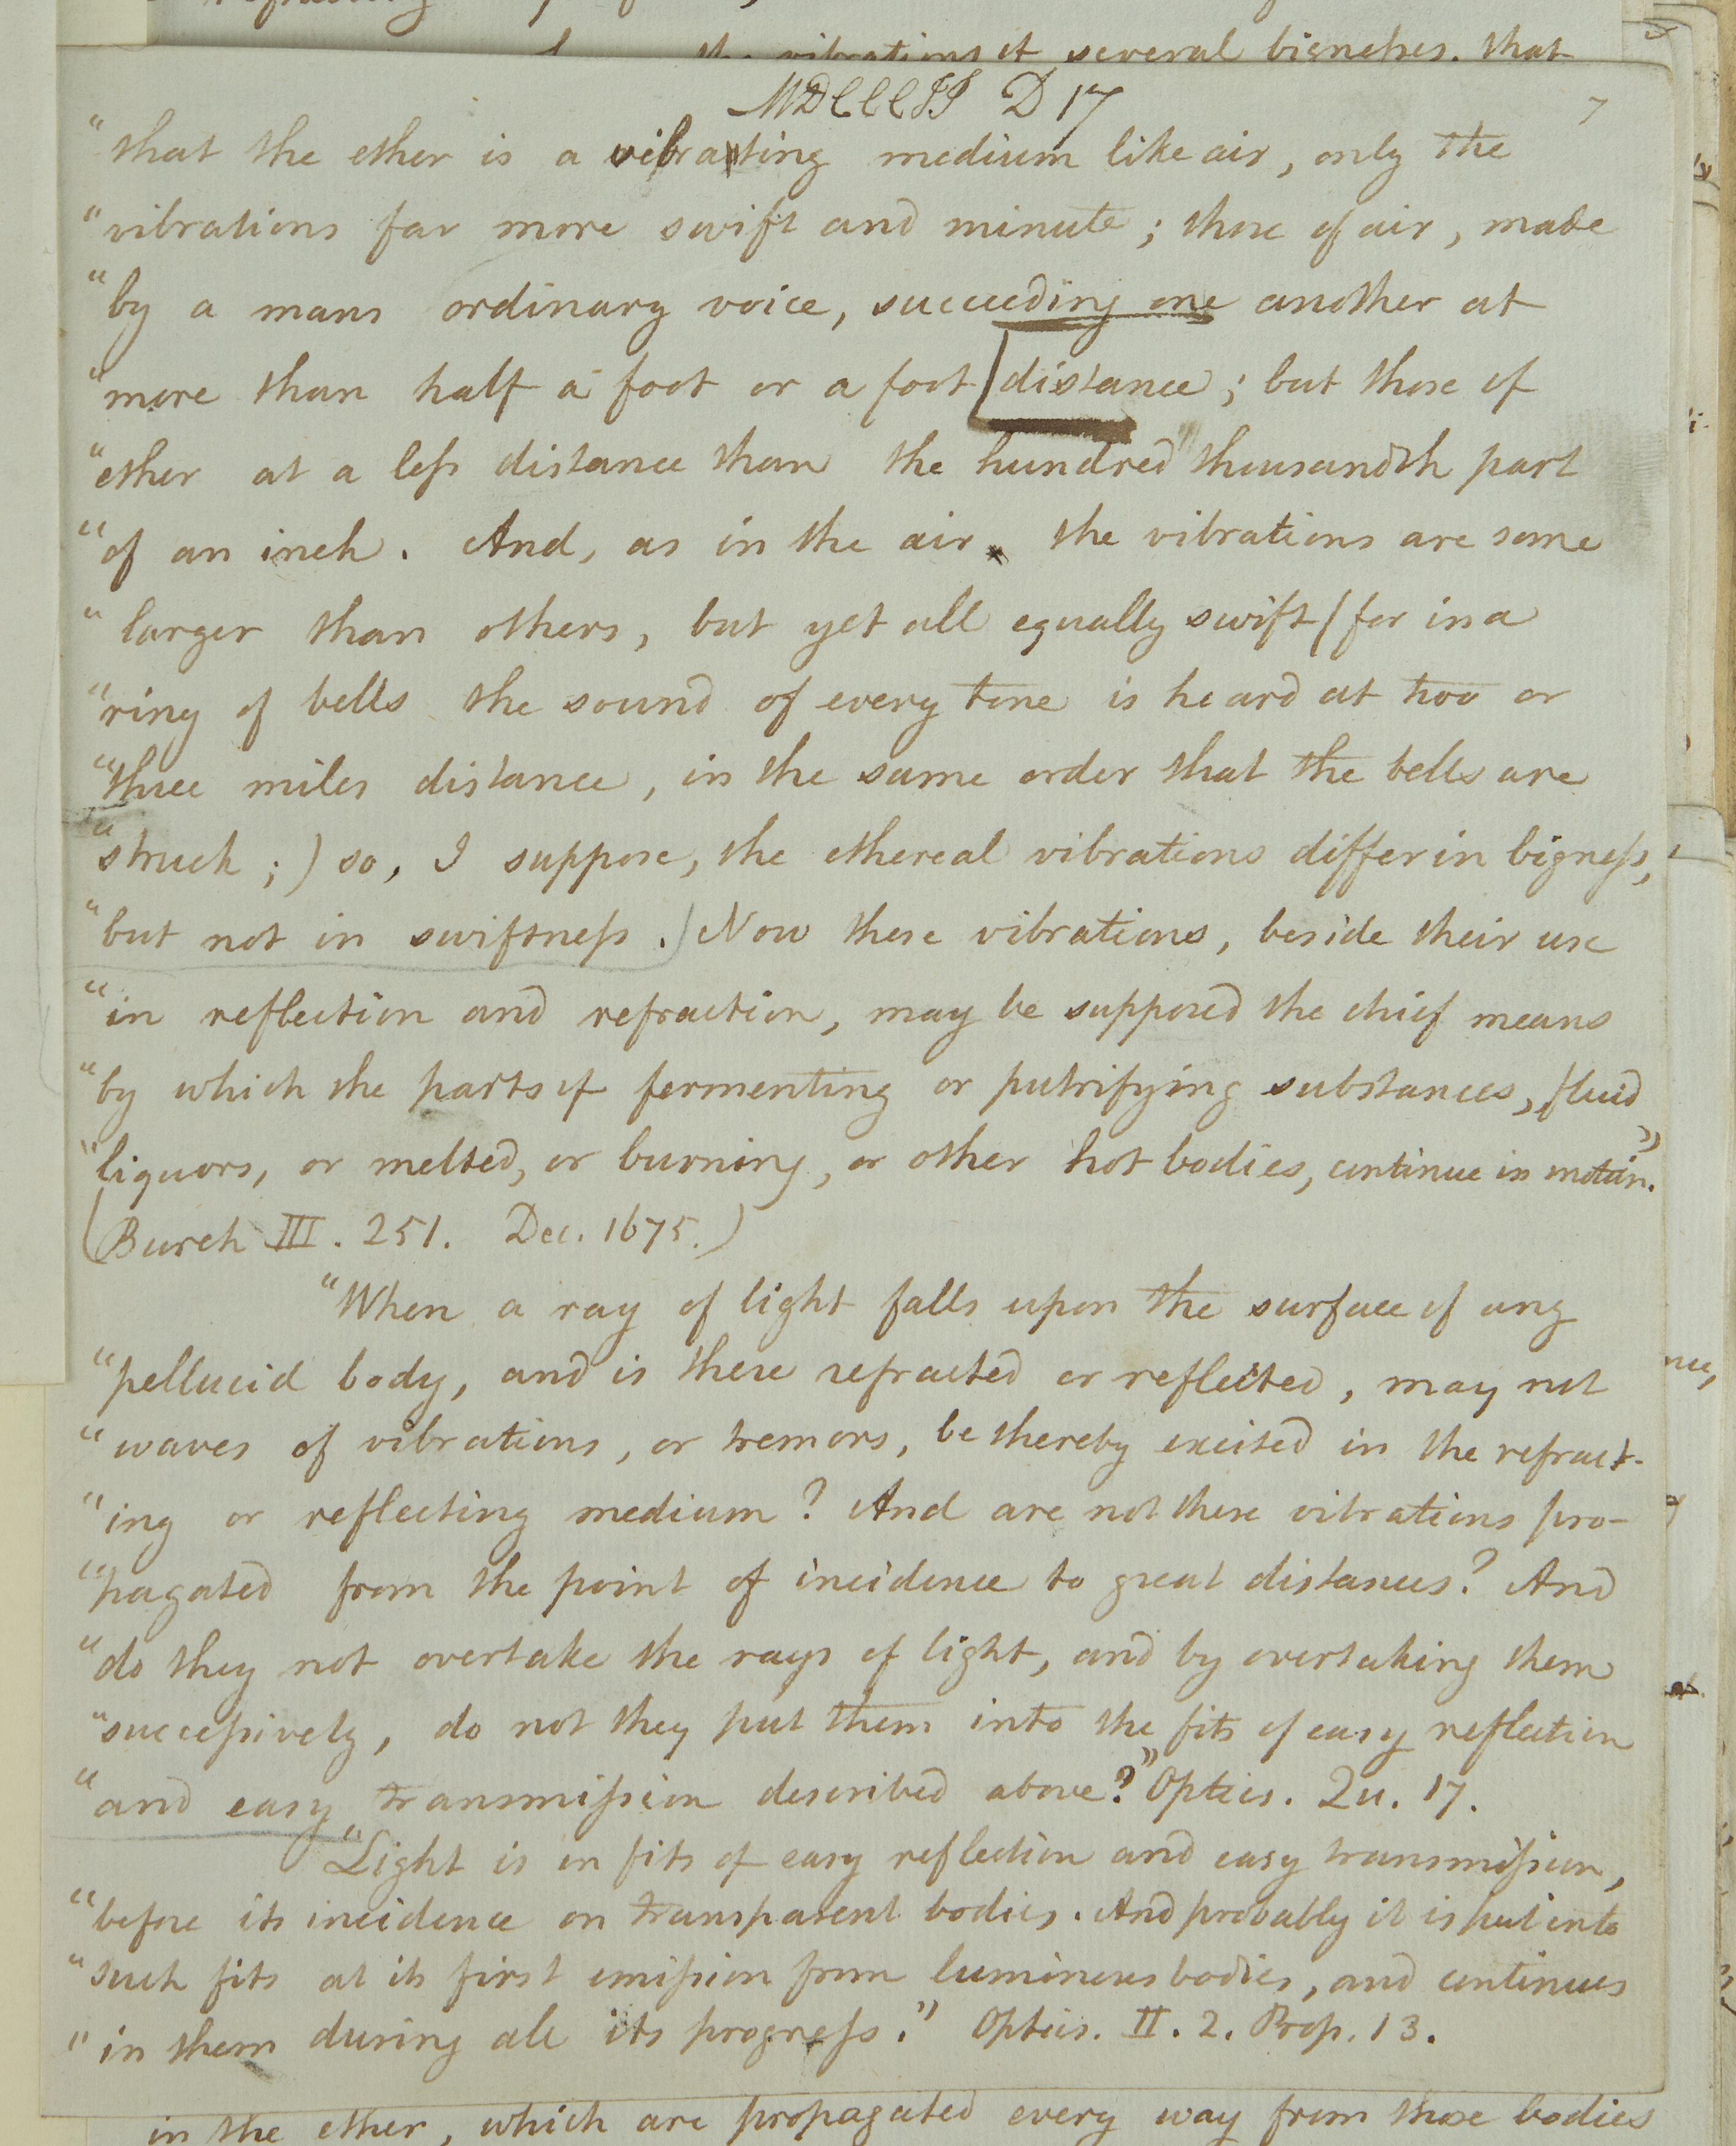 the vibrations of several bignesses, that
MDCCCII D 17
7
"that the ether is a vibrating medium like air, only the
"vibrations far more swift and minute; those of air, made
"by a mans ordinary voice, succeeding one another at
"more than half a foot or a foot distance; but those of
"ether at a less distance than the hundred thousandth part
"of an inch. And, as in the air, the vibrations are some
"larger than others, but yet all equally swift (for in a
"ring of bells the sound of every tone is heard at two or
"three miles distance, in the same order that the bells are
"struck;) so, I suppose, the ethereal vibrations differ in bigness,
"but not in swiftness.) Now these vibrations, beside their use
"in reflection and refraction, may be supposed the chief means
"by which the parts of fermenting or putrifying substances, fluid
"liquors, or melted, or burning, or other hot bodies, continue in motion."
(Burch III. 251. Dec. 1675.)
"When a ray of light falls upon the surface of any
"pellucid body, and is there refracted or reflected, may not
"waves of vibrations, or tremors, be thereby excited in the refract-
"ing or reflecting medium? And are not these vibrations pro-
"pagated from the point of incidence to great distances? And
"do they not overtake the rays of light, and by overtaking them
"successively, do not they put them into the fits of easy reflection
"and easy transmission described above?" Optics. Qu. 17.
"Light is in fits of easy reflection and easy transmission,
"before its incidence on transparent bodies. And probably it is put into
"such fits at its first emission from luminous bodies, and continues
"in them during all its progress." Optics. II. 2. Prop. 13.
in the ether, which are propagated every way from those bodies